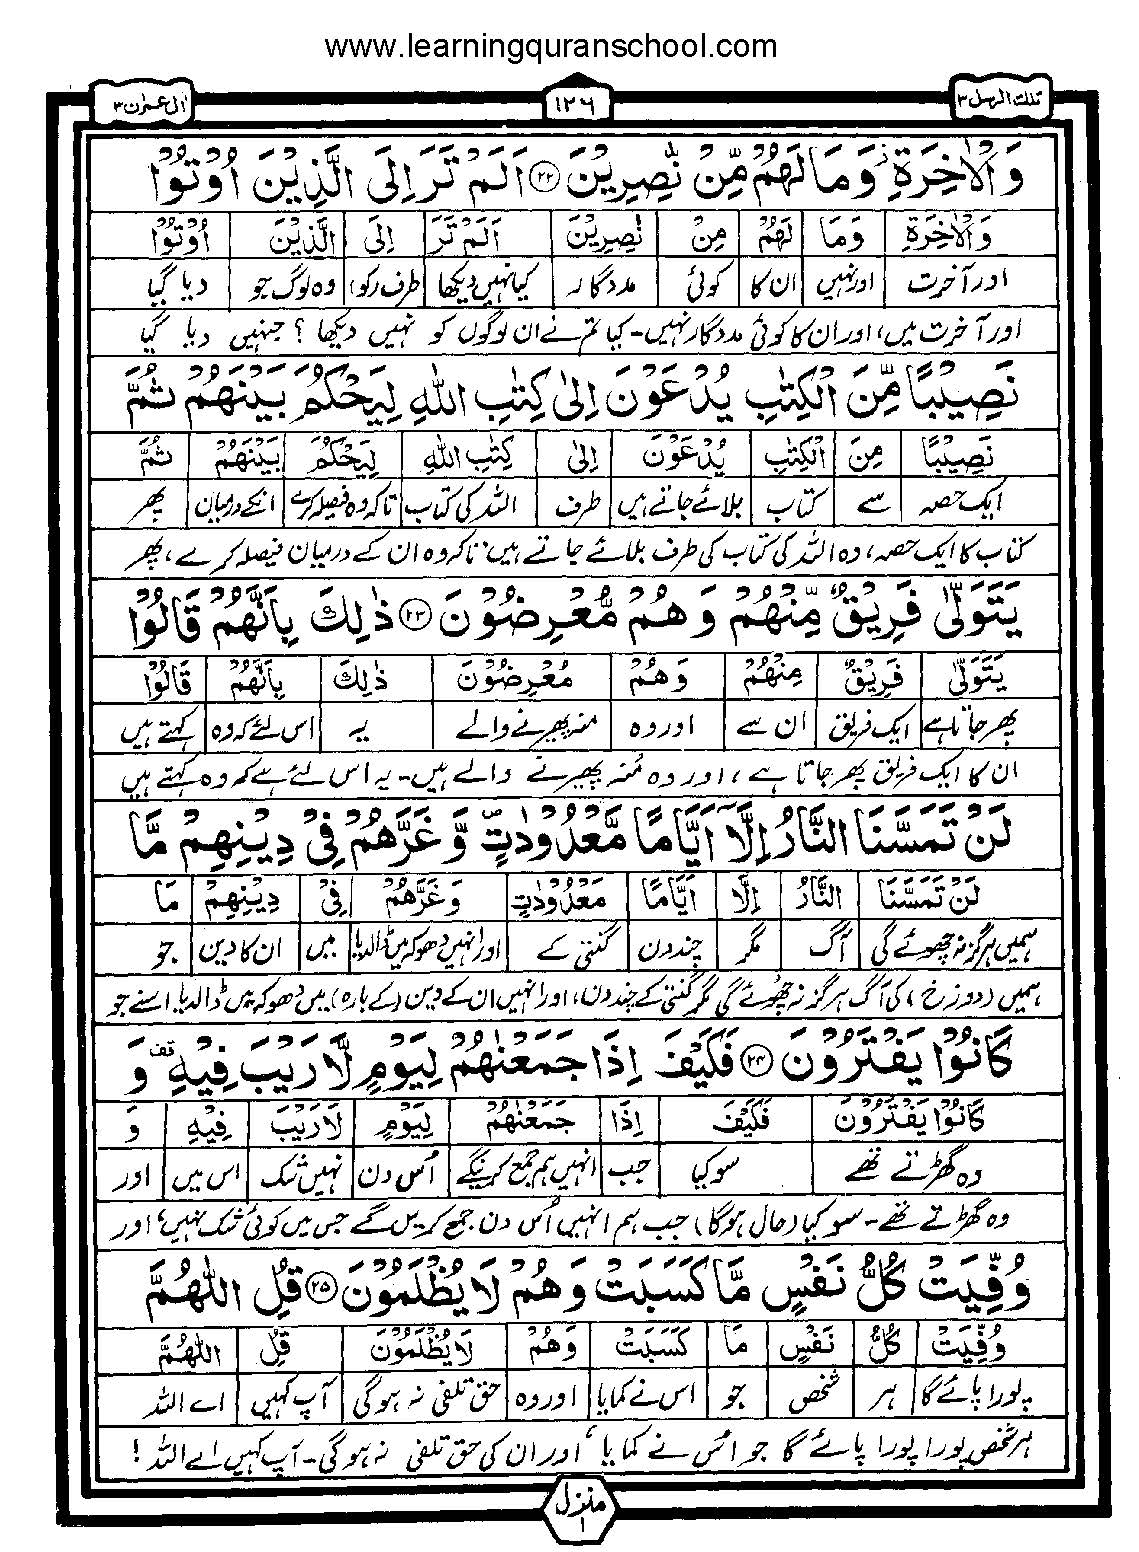 www.learningquranschool.com
تلك الرسل ٣ ١٢٦ اٰل عمرٰن ٣
وَالْاٰخِرَةِ ۫ وَمَا لَهُمْ مِّنْ نّٰصِرِيْنَ ۝۲۲ اَلَمْ تَرَ اِلَى الَّذِيْنَ اُوْتُوْا
وَالْاٰخِرَةِ وَمَا لَهُمْ مِنْ نٰصِرِيْنَ اَلَمْ تَرَ اِلَى الَّذِيْنَ اُوْتُوْا
اور آخرت اور نہیں ان کا کوئی مددگار کیا نہیں دیکھا طرف (کو) وہ لوگ جو دیا گیا
اور آخرت میں، اور ان کا کوئی مددگار نہیں۔ کیا تم نے ان لوگوں کو نہیں دیکھا ؟ جنہیں دیا گیا
نَصِيْبًا مِّنَ الْكِتٰبِ يُدْعَوْنَ اِلٰى كِتٰبِ اللّٰهِ لِيَحْكُمَ بَيْنَهُمْ ثُمَّ
نَصِيْبًا مِنَ الْكِتٰبِ يُدْعَوْنَ اِلٰى كِتٰبِ اللّٰهِ لِيَحْكُمَ بَيْنَهُمْ ثُمَّ
ایک حصہ سے کتاب بلائے جاتے ہیں طرف اللہ کی کتاب تاکہ وہ فیصلہ کرے انکے درمیان پھر
کتاب کا ایک حصہ، وہ اللہ کی کتاب کی طرف بلائے جاتے ہیں تاکہ وہ ان کے درمیان فیصلہ کرے، پھر
يَتَوَلّٰى فَرِيْقٌ مِّنْهُمْ وَهُمْ مُّعْرِضُوْنَ ۝۲۳ ذٰلِكَ بِاَنَّهُمْ قَالُوْا
يَتَوَلّٰى فَرِيْقٌ مِنْهُمْ وَهُمْ مُعْرِضُوْنَ ذٰلِكَ بِاَنَّهُمْ قَالُوْا
پھر جاتا ہے ایک فریق ان سے اور وہ منہ پھیرنے والے یہ اس لئے کہ وہ کہتے ہیں
ان کا ایک فریق پھر جاتا ہے، اور وہ مُنہ پھیرنے والے ہیں۔ یہ اس لئے ہے کہ وہ کہتے ہیں
لَنْ تَمَسَّنَا النَّارُ اِلَّاۤ اَيَّامًا مَّعْدُوْدٰتٍ ۪ وَّغَرَّهُمْ فِيْ دِيْنِهِمْ مَّا
لَنْ تَمَسَّنَا النَّارُ اِلَّا اَيَّامًا مَعْدُوْدٰتٍ وَغَرَّهُمْ فِيْ دِيْنِهِمْ مَا
ہمیں ہرگز نہ چھوئے گی آگ مگر چند دن گنتی کے اور انہیں دھوکہ میں ڈالدیا میں ان کا دین جو
ہمیں (دوزخ) کی آگ ہرگز نہ چھوئے گی مگر گنتی کے چند دن، اور انہیں ان کے دین (کے بارہ) میں دھوکہ میں ڈالدیا اسنے جو
كَانُوْا يَفْتَرُوْنَ ۝۲۴ فَكَيْفَ اِذَا جَمَعْنٰهُمْ لِيَوْمٍ لَّا رَيْبَ فِيْهِ قف وَ
كَانُوْا يَفْتَرُوْنَ فَكَيْفَ اِذَا جَمَعْنٰهُمْ لِيَوْمٍ لَا رَيْبَ فِيْهِ وَ
وہ گھڑتے تھے سو کیا جب انہیں ہم جمع کرینگے اُس دن نہیں شک اس میں اور
وہ گھڑتے تھے۔ سو کیا (حال ہوگا) جب ہم انہیں اُس دن جمع کریں گے جس میں کوئی شک نہیں، اور
وُفِّيَتْ كُلُّ نَفْسٍ مَّا كَسَبَتْ وَهُمْ لَا يُظْلَمُوْنَ ۝۲۵ قُلِ اللّٰهُمَّ
وُفِّيَتْ كُلُّ نَفْسٍ مَا كَسَبَتْ وَهُمْ لَا يُظْلَمُوْنَ قُلِ اللّٰهُمَّ
پورا پائے گا ہر شخص جو اس نے کمایا اور وہ حق تلفی نہ ہوگی آپ کہیں اے اللہ
ہر شخص پورا پورا پائے گا جو اُس نے کمایا، اور ان کی حق تلفی نہ ہوگی۔ آپ کہیں اے اللہ !
منزل ١